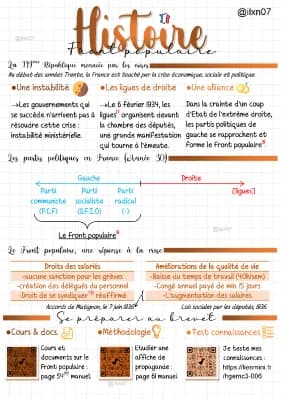 @ilxn07
Histoire
Front populaire
La IIIème République menacée par les crises
Au début des années Trente, la France est touché par la crise économique, sociale et politique.
Une instabilité
→Les gouvernements qui
se succède n'arrivent pas à
résoudre cette crise :
instabilité ministérielle.
Les ligues de droite
→Le 6 Février 1934, les
ligues organisent devant
la chambre des députés,
une grande manifestation
qui tourne à l'émeute.
Une alliance
Dans la crainte d'un coup
d'Etat de l'extrême droite,
les partis politiques de
gauche se rapprochent et
forme le Front populaire
Les partis politiques en France (Année 30)
Gauche
Droite
Parti
communiste
(P.C.F)
Parti
socialiste
(S.F.I.O)
Parti
radical
(-)
[ligues]
Le Front populaire
@ilxn07
Le Front populaire, une réponse à la crise
Droits des salariés
-aucune sanction pour les grèves
-création des délégués du personnel
-Droit de se syndiquer réaffirmé
Accords de Matignon, le 7 juin 1936
Améliorations de la qualité de vie
-Baisse du temps de travail (40h/sem)
-Congé annuel payé de min 15 jours
-L'augmentation des salaires
Lois sociales par les députés, 1936
Se préparer au brevet
Cours & docs
Cours et
documents sur le
Front populaire :
page manuel
Méthodologie
Etudier une
affiche de
propagande :
page 61 manuel
Test connaissances
Je teste mes
connaissances :
https://lienmini.fr
/hgemc3-006